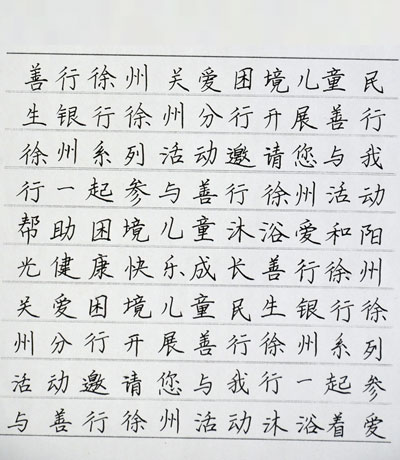 善行徐州关爱困境儿童民
生银行徐州分行开展善行
徐州系列活动邀请您与我
行一起参与善行徐州活动
帮助困境儿童沐浴爱和阳
光健康快乐成长善行徐州
关爱困境儿童民生银行徐
州分行开展善行徐州系列
活动邀请您与我行一起参
与善行徐州活动沐浴着爱